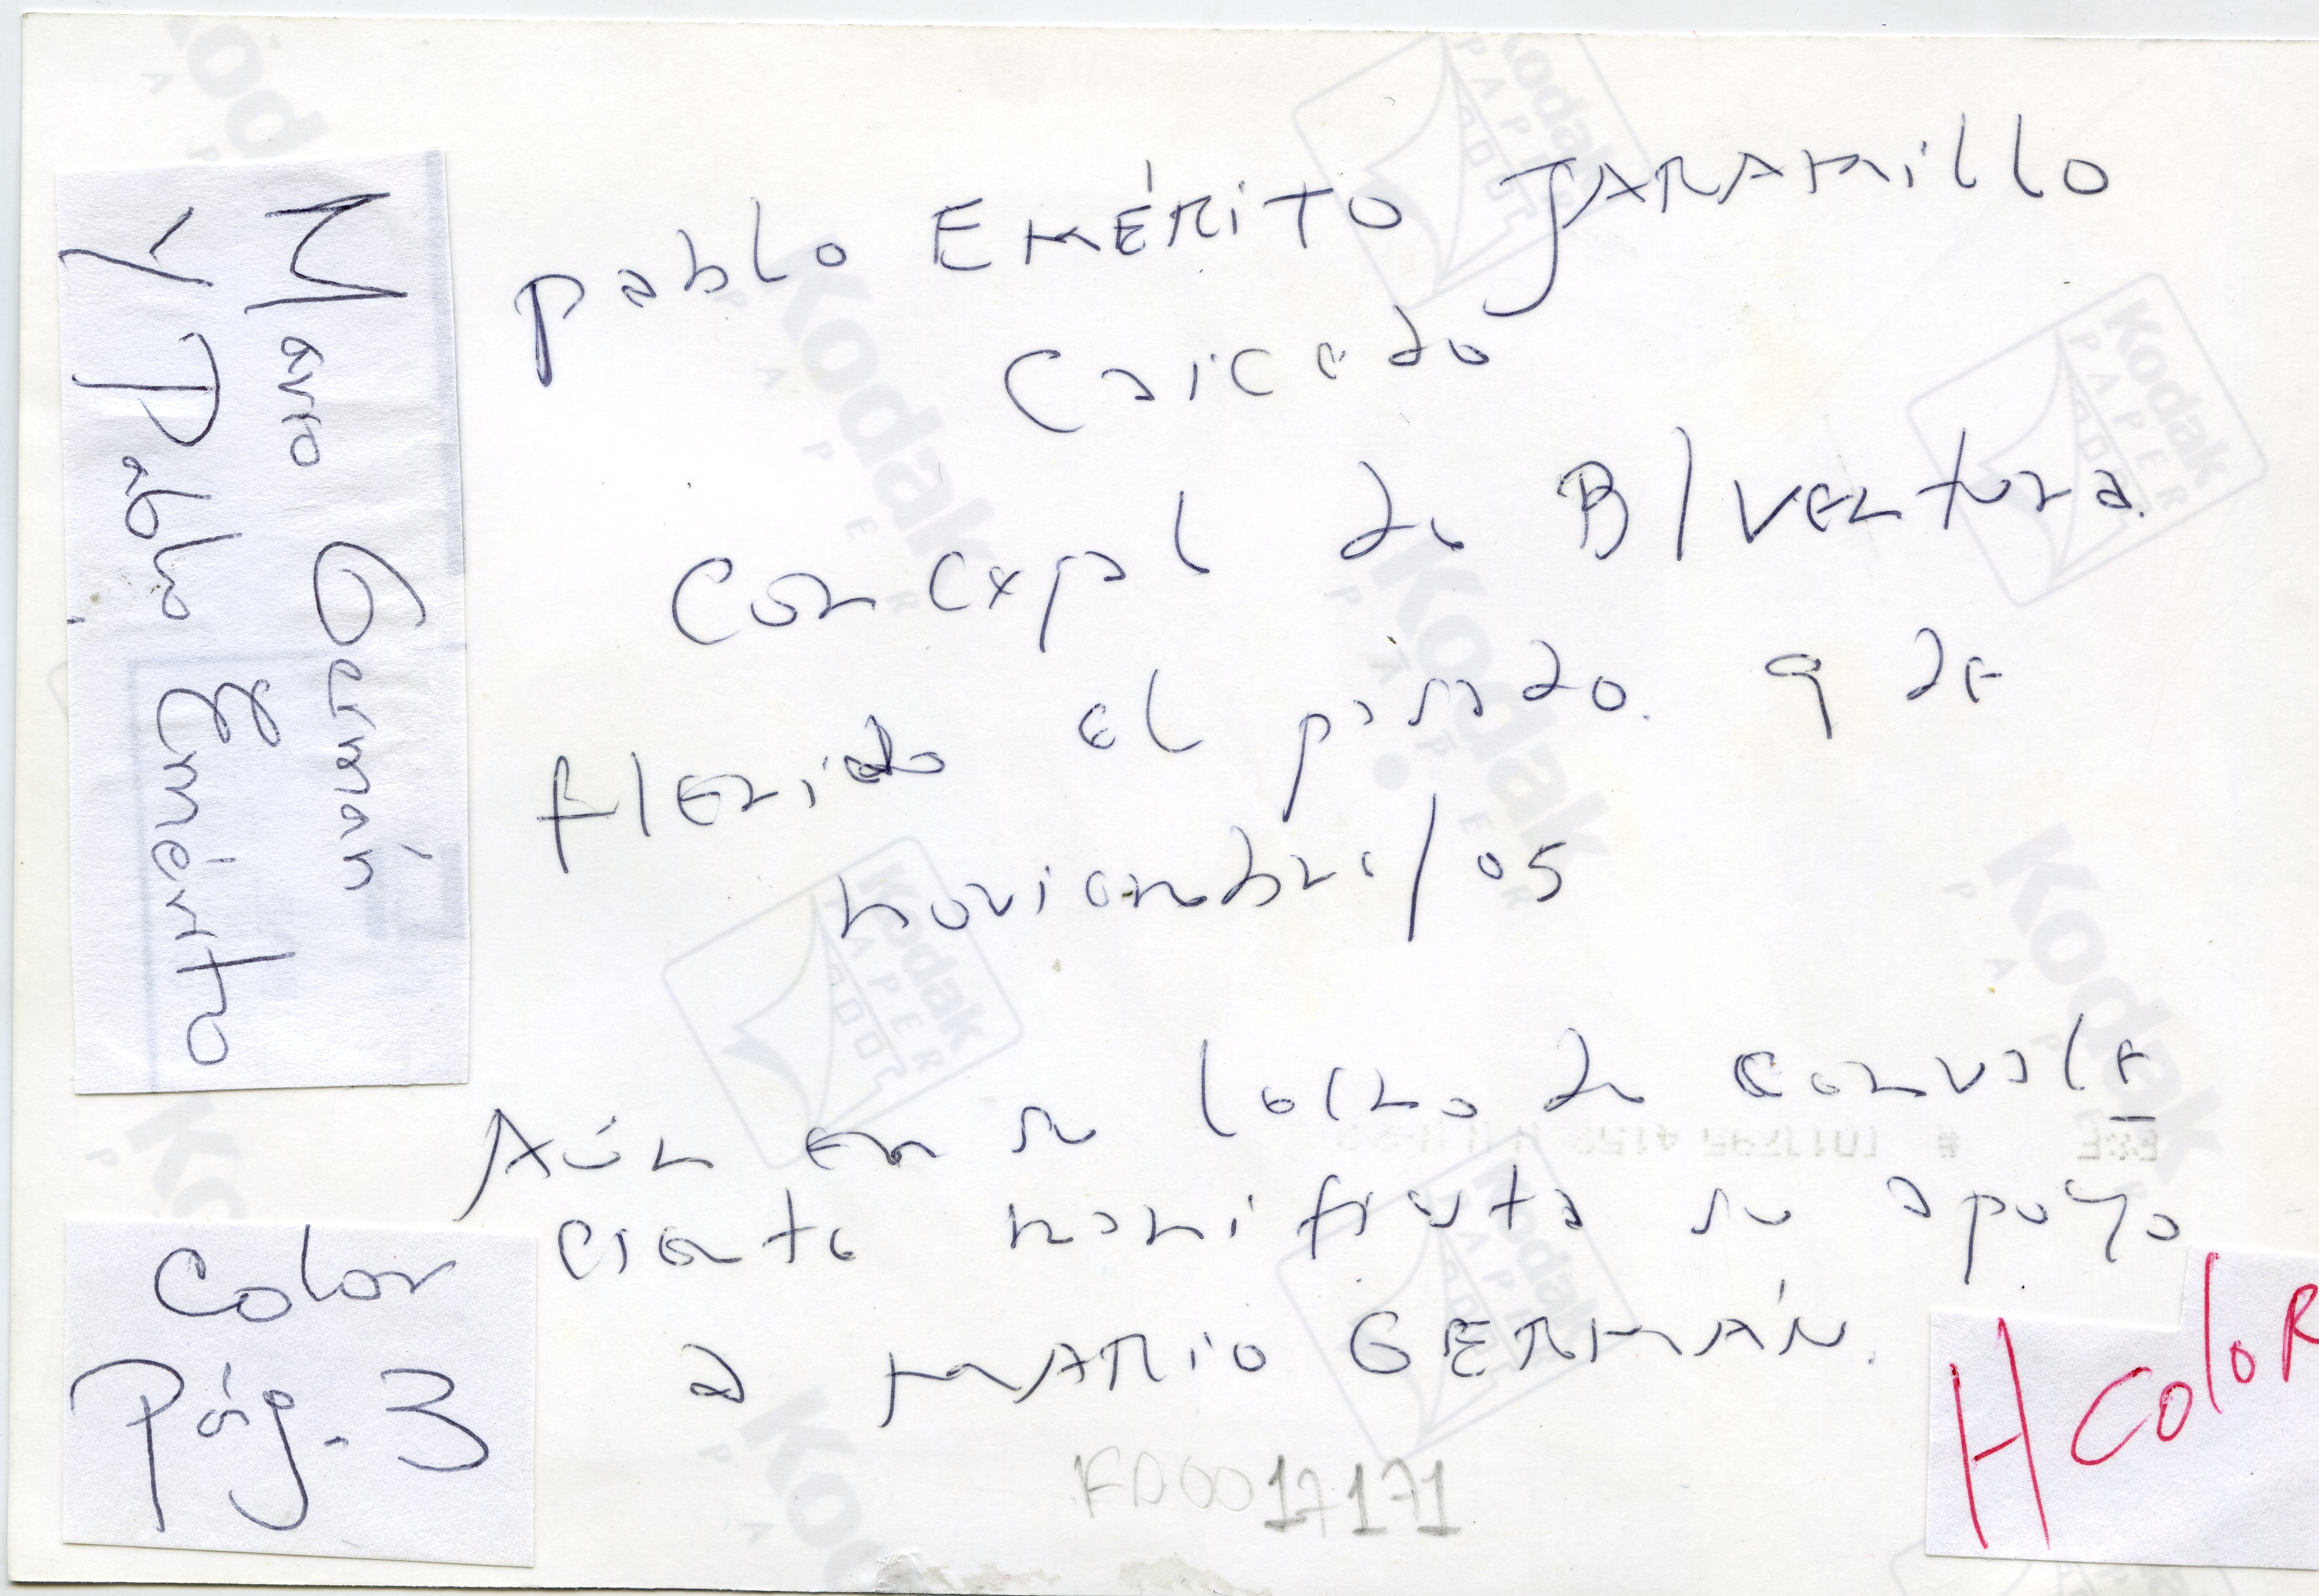 Mario Germán
y Pablo Emérito
Pablo EMÉRITO JARAMillo
Caicedo
Concejal de B/ventura.
el pasado. 9 de
noviembre/05
Aún en su lecho de convale
ciente manifiesta su apoyo
a MARIO GERMÁN.
Color
Pág. 3
H coloR
FD0017171
Kodak
PAPER